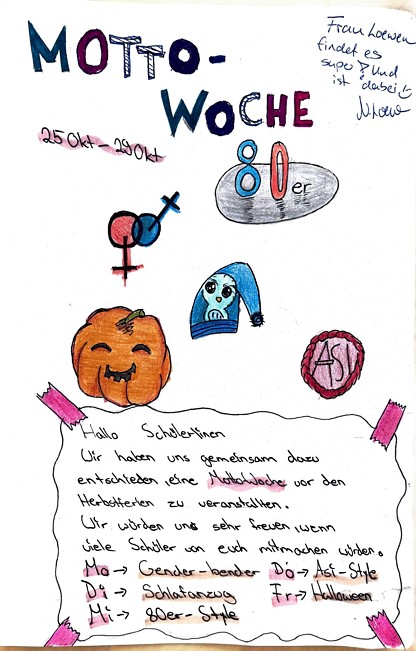 MOTTO-
WOCHE
Frau Loewen
findet es
super! Und
ist dabei
25 Okt - 29 Okt
80er
ASI
Hallo Schülerlinen
Wir haben uns gemeinsam dazu
entschieden, eine MottoWoche vor den
Herbstferien zu veranstallten.
Wir würden uns sehr freuen, wenn
viele Schüler von euch mitmachen würden.
Mo → Gender-bender
Di → Schlafanzug
Mi → 80er-Style
Do → Asi-Style
Fr → Halloween